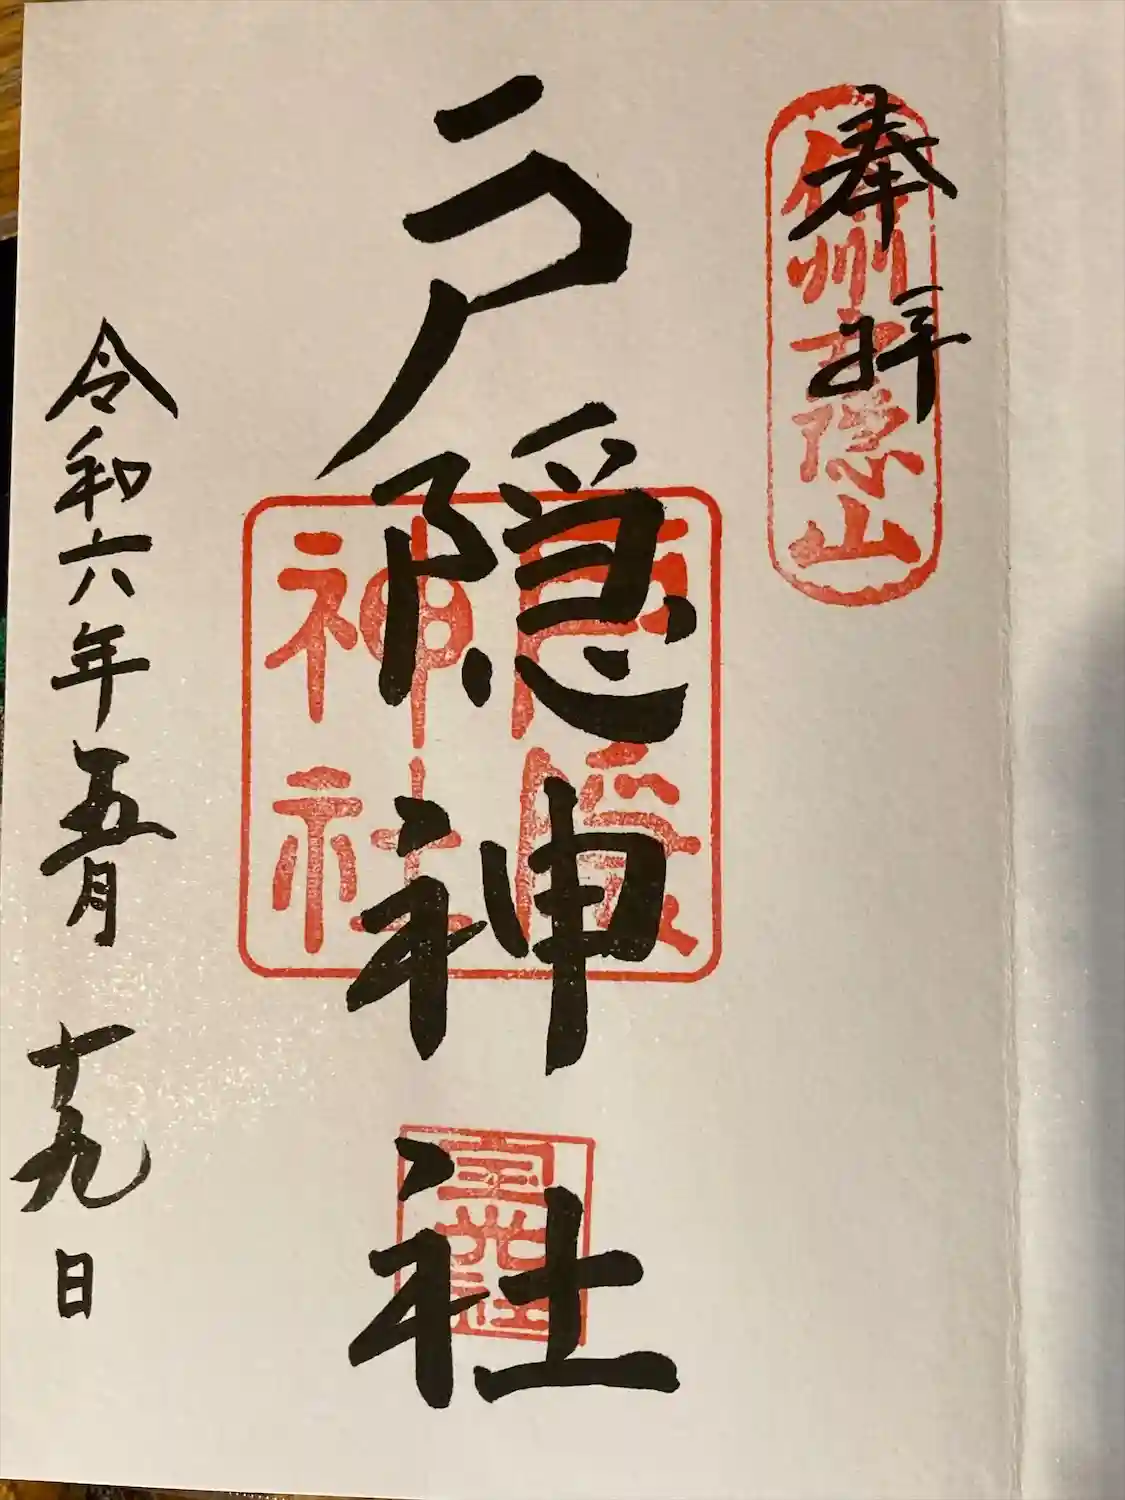 奉拝
信州戸隠山
戸隠神社
戸隠
神社
宝光社
令和六年五月十九日